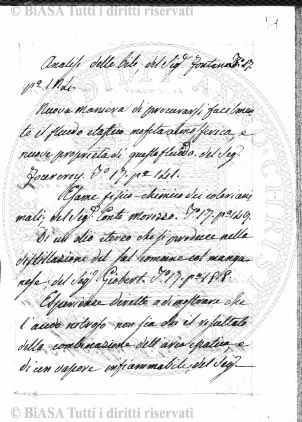 © BIASA Tutti i diritti riservati
1
Analisi delle Bile, del Sig.r Fontana T.o 17.
p.a
Nuova maniera di procurarsi facilmen-
te il fluido elastico mofeta atmosferica, e
nuove proprietà di questo fluido. del Sig.r
Fourcroy. T.o 17. p.a 141.
Esame fisico chimico dei colori ani-
mali, del Sig.r Conte Morozzo. T.o 17. p.a 149.
Di un olio etereo che si produce nella
distillazione del sal comune col manga-
nese; del Sig.r Giobert. T.o 17. p.a 188.
Esperienze dirette a dimostrare che
l'acido nitroso non sia che il risultato
della combinazione dell'aria epatica, e
di un vapore infiammabile, del Sig.r
© BIASA Tutti i diritti riservati